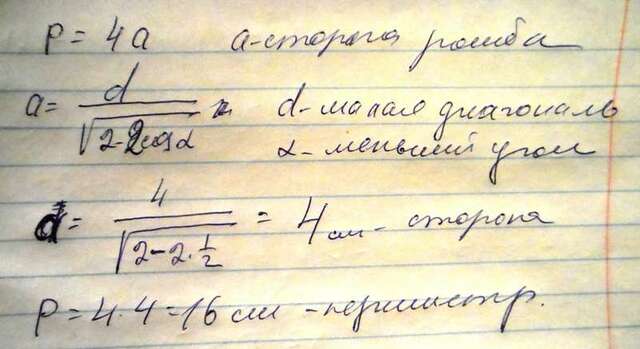 P = 4a   a-сторона ромба
a = d / √(2-2cosα)   d-малая диагональ
α-меньший угол
a = 4 / √(2-2·1/2) = 4 см - сторона
P = 4·4 = 16 см - периметр.